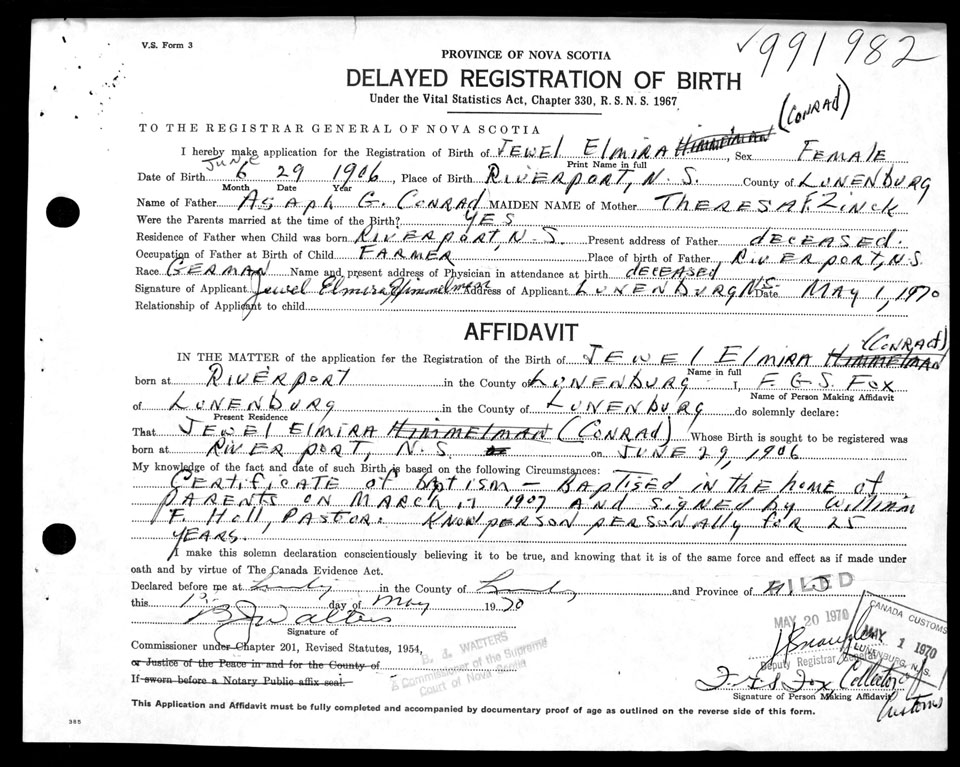 V.S. Form 3
✓991982
PROVINCE OF NOVA SCOTIA
DELAYED REGISTRATION OF BIRTH
Under the Vital Statistics Act, Chapter 330, R.S.N.S. 1967
(CONRAD)
TO THE REGISTRAR GENERAL OF NOVA SCOTIA
I hereby make application for the Registration of Birth of JEWEL ELMIRA HIMMELMAN, Sex FEMALE
JUNE
Print Name in full
Date of Birth 6 29 1906, Place of Birth RIVERPORT, N.S. County of LUNENBURG
Month Date Year
Name of Father ASAPH G. CONRAD MAIDEN NAME of Mother THERESA F. ZINCK
Were the Parents married at the time of the Birth? YES
Residence of Father when Child was born RIVERPORT, N.S. Present address of Father DECEASED.
Occupation of Father at Birth of Child FARMER Place of birth of Father RIVERPORT, N.S.
Race GERMAN Name and present address of Physician in attendance at birth DECEASED
Signature of Applicant Jewel Elmira Himmelman Address of Applicant LUNENBURG N.S. Date MAY 1, 1970
Relationship of Applicant to child
AFFIDAVIT
(CONRAD)
IN THE MATTER of the application for the Registration of the Birth of JEWEL ELMIRA HIMMELMAN
Name in full
born at RIVERPORT in the County of LUNENBURG I, F. G. S. FOX
Name of Person Making Affidavit
of LUNENBURG in the County of LUNENBURG do solemnly declare:
Present Residence
That JEWEL ELMIRA HIMMELMAN (CONRAD) Whose Birth is sought to be registered was
born at RIVERPORT, N.S. on JUNE 29, 1906
My knowledge of the fact and date of such Birth is based on the following Circumstances:
CERTIFICATE OF BAPTISM - BAPTISED IN THE HOME OF
PARENTS ON MARCH 17 1907 AND SIGNED BY WILLIAM
F. HOLL, PASTOR. KNOW PERSON PERSONALLY FOR 25
YEARS.
I make this solemn declaration conscientiously believing it to be true, and knowing that it is of the same force and effect as if made under
oath and by virtue of The Canada Evidence Act.
Declared before me at in the County of and Province of N S
FILED
this 1st day of May 1970
MAY 20 1970
B J Walters
Signature of
Commissioner under Chapter 201, Revised Statutes, 1954,
or Justice of the Peace in and for the County of
If sworn before a Notary Public affix seal.
B. J. WALTERS
A Commissioner of the Supreme
Court of Nova Scotia
CANADA CUSTOMS
MAY 1 1970
LUNENBURG, N.S.
Deputy Registrar General
F. G. S. Fox, Collector
Customs
Signature of Person Making Affidavit
This Application and Affidavit must be fully completed and accompanied by documentary proof of age as outlined on the reverse side of this form.
385